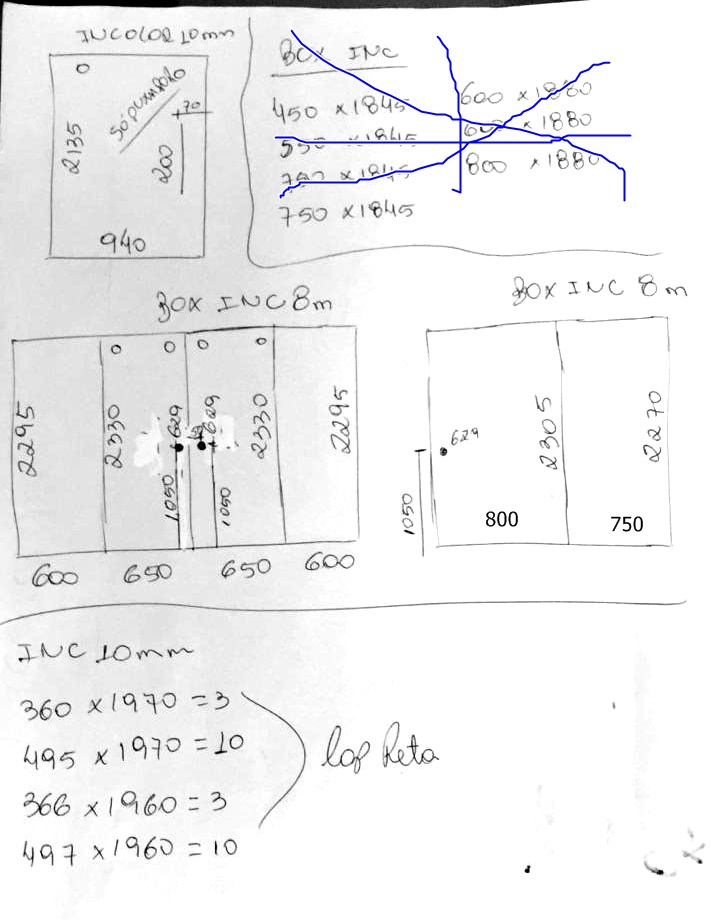 INCOLOR 10mm
2135
Só puxador
70
200
940
BOX INC
450 x1845
550 x1845
750 x1845
600 x1880
600 x1880
800 x1880
BOX INC 8m
2295
2330
629
629
2330
2295
1050
1050
600 650 650 600
BOX INC 8m
629
2305
2270
1050
800
750
INC 10mm
360 x1970 = 3
495 x1970 = 10
366 x1960 = 3
497 x1960 = 10
lap Reta